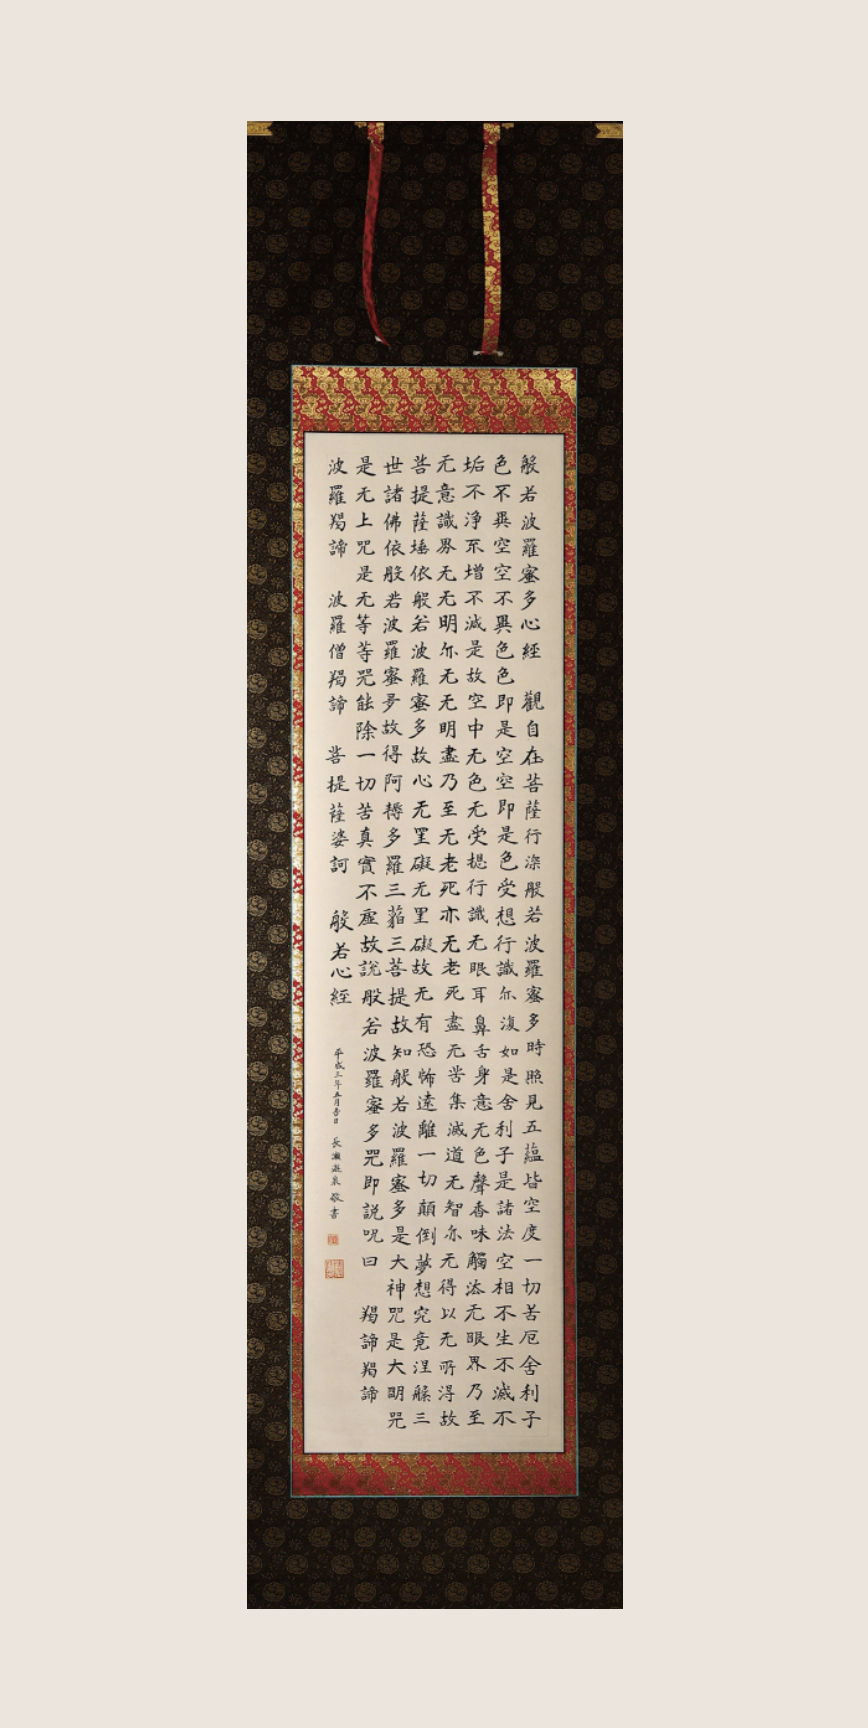 般若波羅蜜多心經 觀自在菩薩行深般若波羅蜜多時照見五蘊皆空度一切苦厄舍利子
色不異空空不異色色即是空空即是色受想行識亦復如是舍利子是諸法空相不生不滅不
垢不淨不增不減是故空中无色无受想行識无眼耳鼻舌身意无色聲香味觸法无眼界乃至
无意識界无无明亦无无明盡乃至无老死亦无老死盡无苦集滅道无智亦无得以无所得故
菩提薩埵依般若波羅蜜多故心无罣礙无罣礙故无有恐怖遠離一切顛倒夢想究竟涅槃三
世諸佛依般若波羅蜜多故得阿耨多羅三藐三菩提故知般若波羅蜜多是大神咒是大明咒
是无上咒是无等等咒能除一切苦真實不虛故說般若波羅蜜多咒即説呪曰 羯諦羯諦
波羅羯諦 波羅僧羯諦 菩提薩婆訶 般若心經
平成三年五月吉日 長瀬 敬書